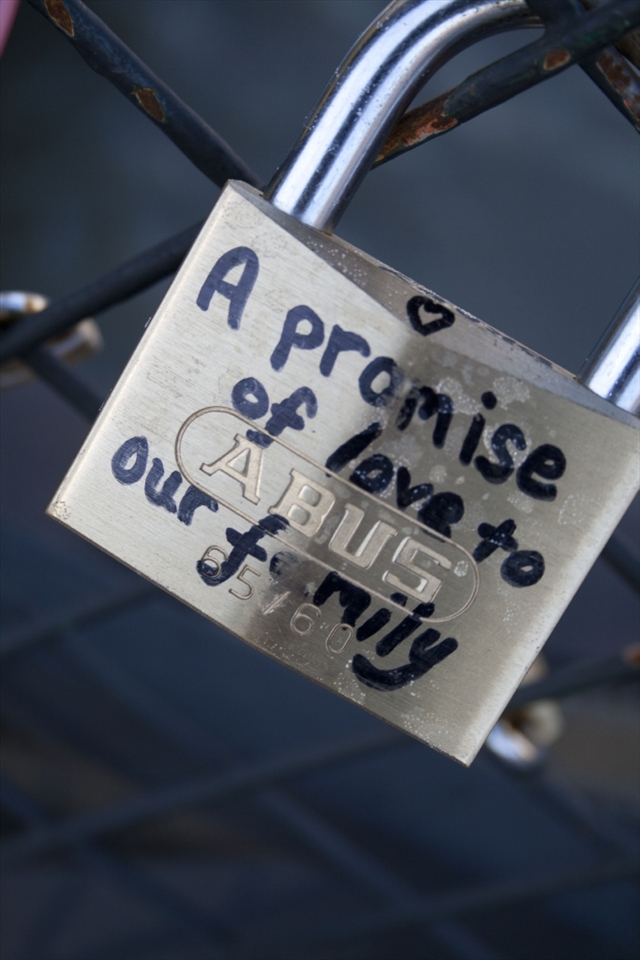 A promise
of love to
our family
ABUS
65/60